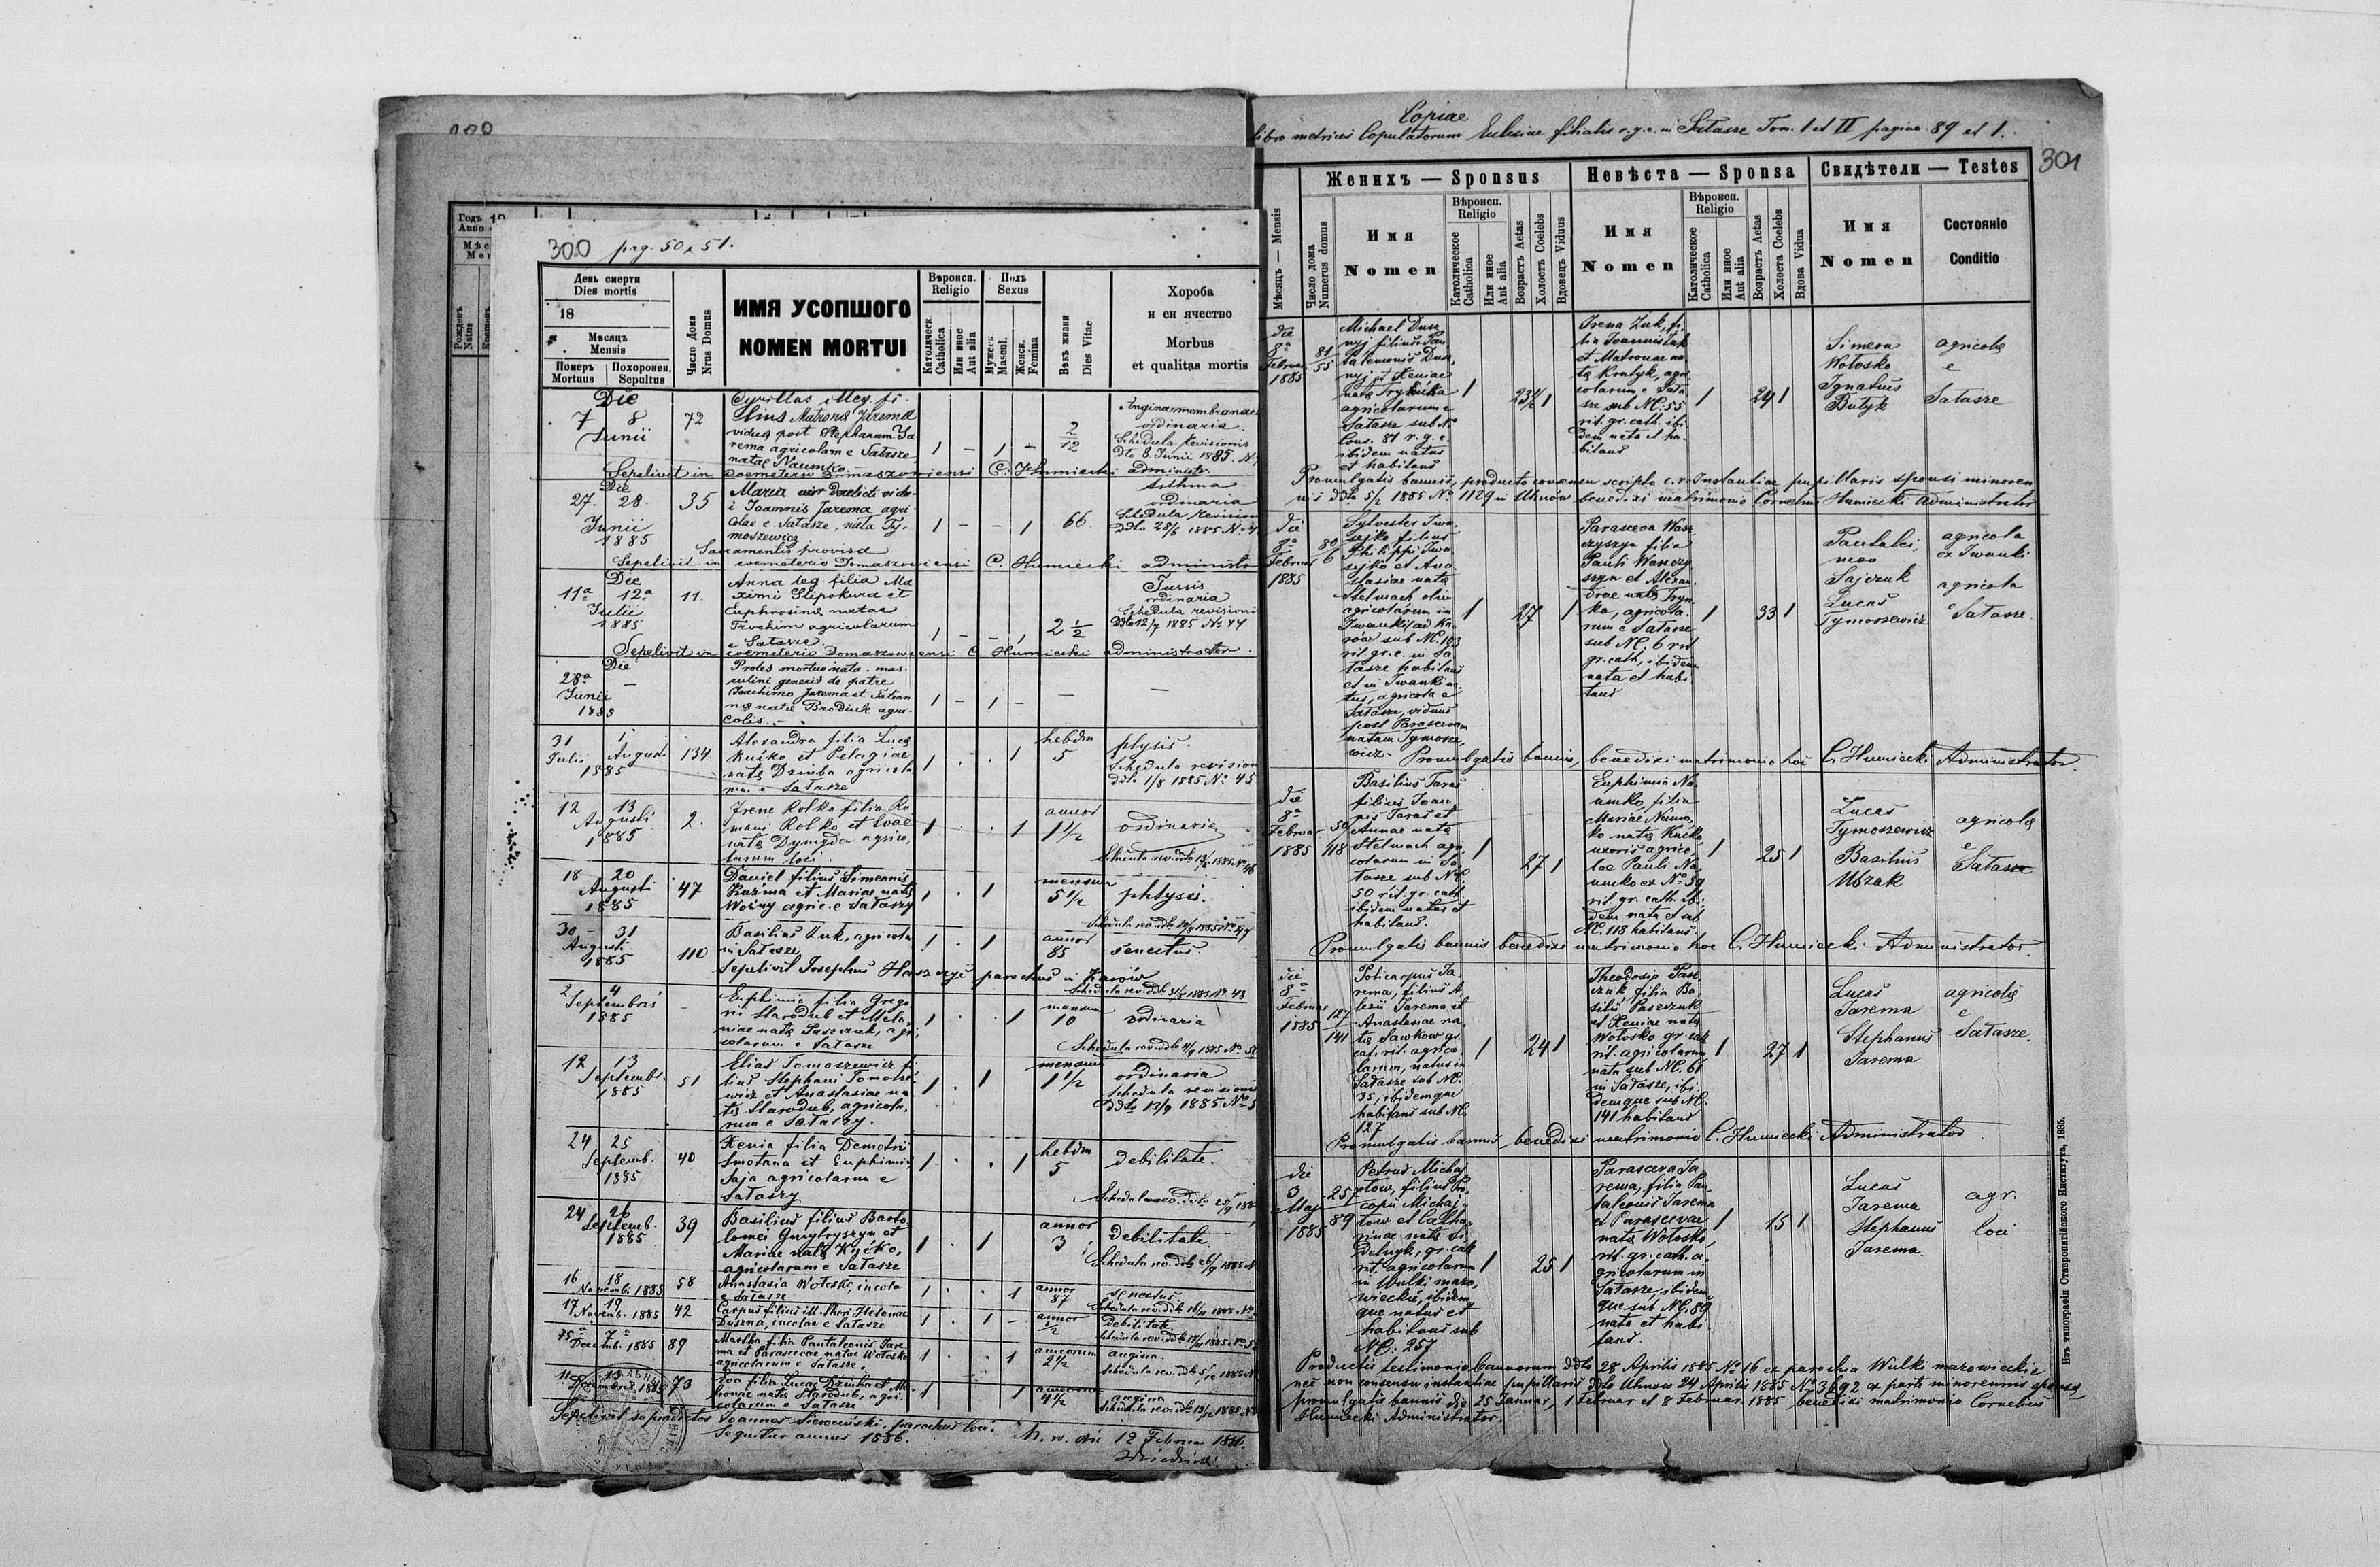 300 pag. 50 & 51.
Годъ
Anno
Рожденъ
Natus
День смерти
Dies mortis
18
Мѣсяцъ
Mensis
Померъ
Mortuus
Похоронен.
Sepultus
Число Дома
Nrus Domus
ИМЯ УСОПШОГО
NOMEN MORTUI
Вѣроисп.
Religio
Католическ.
Catholica
Или иное
Aut alia
Полъ
Sexus
Мужеск.
Mascul.
Женск.
Femina
Вѣкъ жизни
Dies Vitae
Хороба
и еи ячество
Morbus
et qualitas mortis
Die
7 8
Junii
72
Cyrillus illeg. fi-
lius Matronae Jarema
vidua post Stephanum Ja
rema agricolam e Satasze
natae Naumko
1 - 1 -
2/12
Angina membranac
ordinaria.
Schedula revisionis
Dto 8 Junii 1885. N
Sepelivit in coemeterio Domaszowiensi C. Humiecki administr.
Die
27. 28.
Junii
1885
35
Maria
i Joannis Jarema agri-
colae e Satasze, nata Ty-
moszewicz
Sacramentis provisa
1 - - 1
66.
Asthma
ordinaria
Schedula revision
Ddto 28/6 1885 N
Sepelivit in coemeterio Domaszowiensi C. Humiecki administr
Die
11a 12a
Julii
1885
11.
Anna leg. filia Ma
ximi Slipokura et
Euphrosinae natae
Trochim agricolarum
e Satasze
1 - - 1
2 1/2
Tussis
ordinaria
Schedula revisioni
Ddto 12/7 1885 No 44
Sepelivit in coemeterio Domaszowiensi C Humiecki administrator.
Die
28a -
Junii
1885
Proles mortuo nata. mas
culini generis de patre
Joachimo Jarema et Tatian
na natae Brodiuk agri-
colis. -
1 - 1 -
31 1
Julii Augusti
1885
134.
Alexandra filia Lucae
Kućko et Pelagiae
natae Dziuba agricola
rum e Satasze
1 . . 1
hebdm
5
phtysis.
Schedula revision
ddto 1/8 1885 No 45
12 13
Augusti
1885
2.
Irene Rolko filia Ro
mani Rolko et Evae
natae Dymyda agrico
larum loci.
1 . . 1
annor
1 1/2
ordinaria
18 20
Augusti
1885
47
Daniel filius Simeonis
Kuźma et Mariae natae
Woźny agric. e Sataszy
1 . 1
mensium
5 1/2
phtysis.
30 - 31
Augusti
1885
110
Basilius Żuk, agricola
in Satasze
1 . 1
annor
85
senectus.
Sepelivit Josephus parochus in Karów
Schedula rev. ddto 31/8 1885 No 48
2 4
Septembris
1885
Euphimia filia Grego
rii Starodub et Mela-
niae natae Paszczuk, agri-
colarum e Satasze
1 . . 1
mensum
10
ordinaria
Schedula rev. ddto 4/9 1885 No
12 13
Septembr.
1885
51
Elias Tomoszewicz fi
lius Stephani Tomosze
wicz et Anastasiae na
tae Starodub, agricola
rum e Sataszy.
1 . 1
mensum
1 1/2
ordinaria
Schedula revisionis
Ddto 13/9 1885 No
24 25
Septemb.
1885
40
Xenia filia Demetrii
Smotana et Euphimia
Saja agricolarum e
Sataszy
1 . . 1
hebdm
5
debilitate.
24 26
Septemb.
1885
39
Basilius filius Barto
lomei et
Mariae natae Kućko,
agricolarum e Satasze
1 . 1
annor
3
debilitate
Schedula rev. ddto 26/9 1885 N
16 18
Novemb. 1885
58
Anastasia Wołosko, incola
e Satasze
1 . . 1
annor
87
senectus.
17 19
Novemb. 1885
42
Carpus filius illthori Helenae
Duszna, incolae e Satasze
1 . 1 -
annor
1/2
Debilitate.
5a 7a
Decemb. 1885
89
Martha filia Pantaleonis Jare-
ma et Parascevae natae Wołosko
agricolarum e Satasze.
1 . . 1
annorum
2 1/2
angina.
Decembris 1885
73
Eva filia Lucae Dziuba et Ma-
tronae natae Starodub, agri-
colarum e Satasze
1 1
4 1/2
angina
Sepelivit supradictos Joannes parochus loci.
Sequitur annus 1886.
12 Februar
Copiae
libro metrices Copulatorum Eclesiae filialis r. g. c. in Satasze Tom. I et II pagina 89 et 1.
301
Мѣсяцъ — Mensis
Число дома
Numerus domus
Женихъ — Sponsus
Имя
Nomen
Вѣроисп.
Religio
Католическое
Catholica
Или иное
Aut alia
Возрастъ Aetas
Холостъ Coelebs
Вдовецъ Viduus
Невѣста — Sponsa
Имя
Nomen
Вѣроисп.
Religio
Католическое
Catholica
Или иное
Aut alia
Возрастъ Aetas
Холоста Coelebs
Вдова Vidua
Свидѣтели — Testes
Имя
Nomen
Состояніе
Conditio
die
8a
Februar
1885
81
55
Michael Dusz
nyj filius Pan
taleonis Dusz
nyj et Xeniae
nata Hrynika
agricolarum e
Satasze sub N.
Cons. 81 r. g. c.
ibidem natus
et habitans
1 23 1/2 1
Irena Żuk, fi-
lia Joannis Żuk
et Matronae na-
ta Kratyk, agri
colarum e Sata-
sze sub NC. 55
rit. gr. cath. ibi
dem nata et ha-
bitans
1 24 1
Simeon
Wołosko
Ignatius
Butyk
agricolae
e
Satasze
Promulgatis bannis, producto consensu scripto c. r. Instantiae pupillaris sponsi minoren
nis ddto 5/2 1885 No 1129 in Uhnów benedixi matrimonio Cornelius Humiecki Administrator
die
8a
Februar
1885
80
6
Sylvester Iwa-
sejko filius
Philippi Iwa
sejko et Ana-
stasiae nata
Stelmach olim
agricolarum in
Iwanki ad Ka-
rów sub NC. 103
rit. gr. c. in Sa-
tasze habitans
et in Iwanki na-
tus, agricola e
Satasze, viduus
post Parascevam
natam Tymosze,
wicz.
1 27 1
Parasceva Wasz
czyszyn filia
Pauli Waszczy
szyn et Alexan-
drae nata Hryn-
ko, agricola
rum e Satasze
sub NC. 6 rit
gr. cath, ibidem
nata et habi-
tans
1 33 1
Pantalei-
mon
Sajczuk
Lucas
Tymoszewicz
agricola
ex Iwanki
agricola
e Satasze.
Promulgatis bannis, benedixi matrimonio hoc C. Humiecki Administrator.
die
8a
Februar
1885
50
118
Basilius Taras
filius Joan-
nis Taras et
Annae nata
Stelmach agri-
colarum in Sa-
tasze sub NC.
50 rit. gr. cath
ibidem natus et
habitans.
1 27 1
Euphimia Na-
umko, filia
Mariae Naum-
ko nata Kućko,
uxoris agrico-
lae Pauli Na-
umko ex No 59
rit. gr. cath. ibi-
dem nata et sub
NC. 118 habitans
1 25 1
Lucas
Tymoszewicz
Basilius
Uszak
agricolae
e
Satasze
Promulgatis bannis benedixi matrimonio hoc C. Humiecki Administrator.
die
8a
Februar
1885
127
141
Policarpus Ja-
rema, filius A-
lexii Jarema et
Anastasiae na-
ta Sawkow gr.
cat. rit. agrico-
larum, natus in
Satasze sub NC.
35, ibidemque
habitans sub NC.
127
1 24 1
Theodosia Pasz
czuk filia Ba-
silii Paszczuk
et Xeniae nata
Wołosko gr. cat
rit. agricolarum
nata sub NC. 61
in Satasze, ibi-
demque sub NC.
141 habitans
1 27 1
Lucas
Jarema
Stephanus
Jarema
agricolae
e
Satasze.
Promulgatis bannis, benedixi matrimonio C. Humiecki Administrator.
die
3
Maji
1885
257
89
Petrus Michaj
łow, filius Pro
copii Michaj-
łow et Catha-
rinae nata Si-
delnyk, gr. cat
rit. agricolarum
in Wulki mazo,
wieckie, ibidem
que natus et
habitans sub
NC: 257
1 25 1
Parasceva Ja-
rema, filia Pan
taleonis Jarema
et Parascevae
nata Wołosko,
rit. gr. cath. a-
gricolarum in
Satasze, ibidem
que sub NC. 89
nata et habi-
tans.
1 15 1
Lucas
Jarema
Stephanus
Jarema.
agr.
loci
Productis testimonio bannorum ddto 28 Aprilis 1885 No 16 ex parochia Wulki mazowieckie
nec non consensu instantiae pupillaris ddto Uhnow 24 Aprilis 1885 No 3692 ex parte minorennis sponsae
promulgatis bannis die 25 Januar, 1 Februar et 8 Februar 1885 benedixi matrimonio Cornelius
Humiecki Administrator.
Изъ типографіи Ставропигійского Института, 1885.